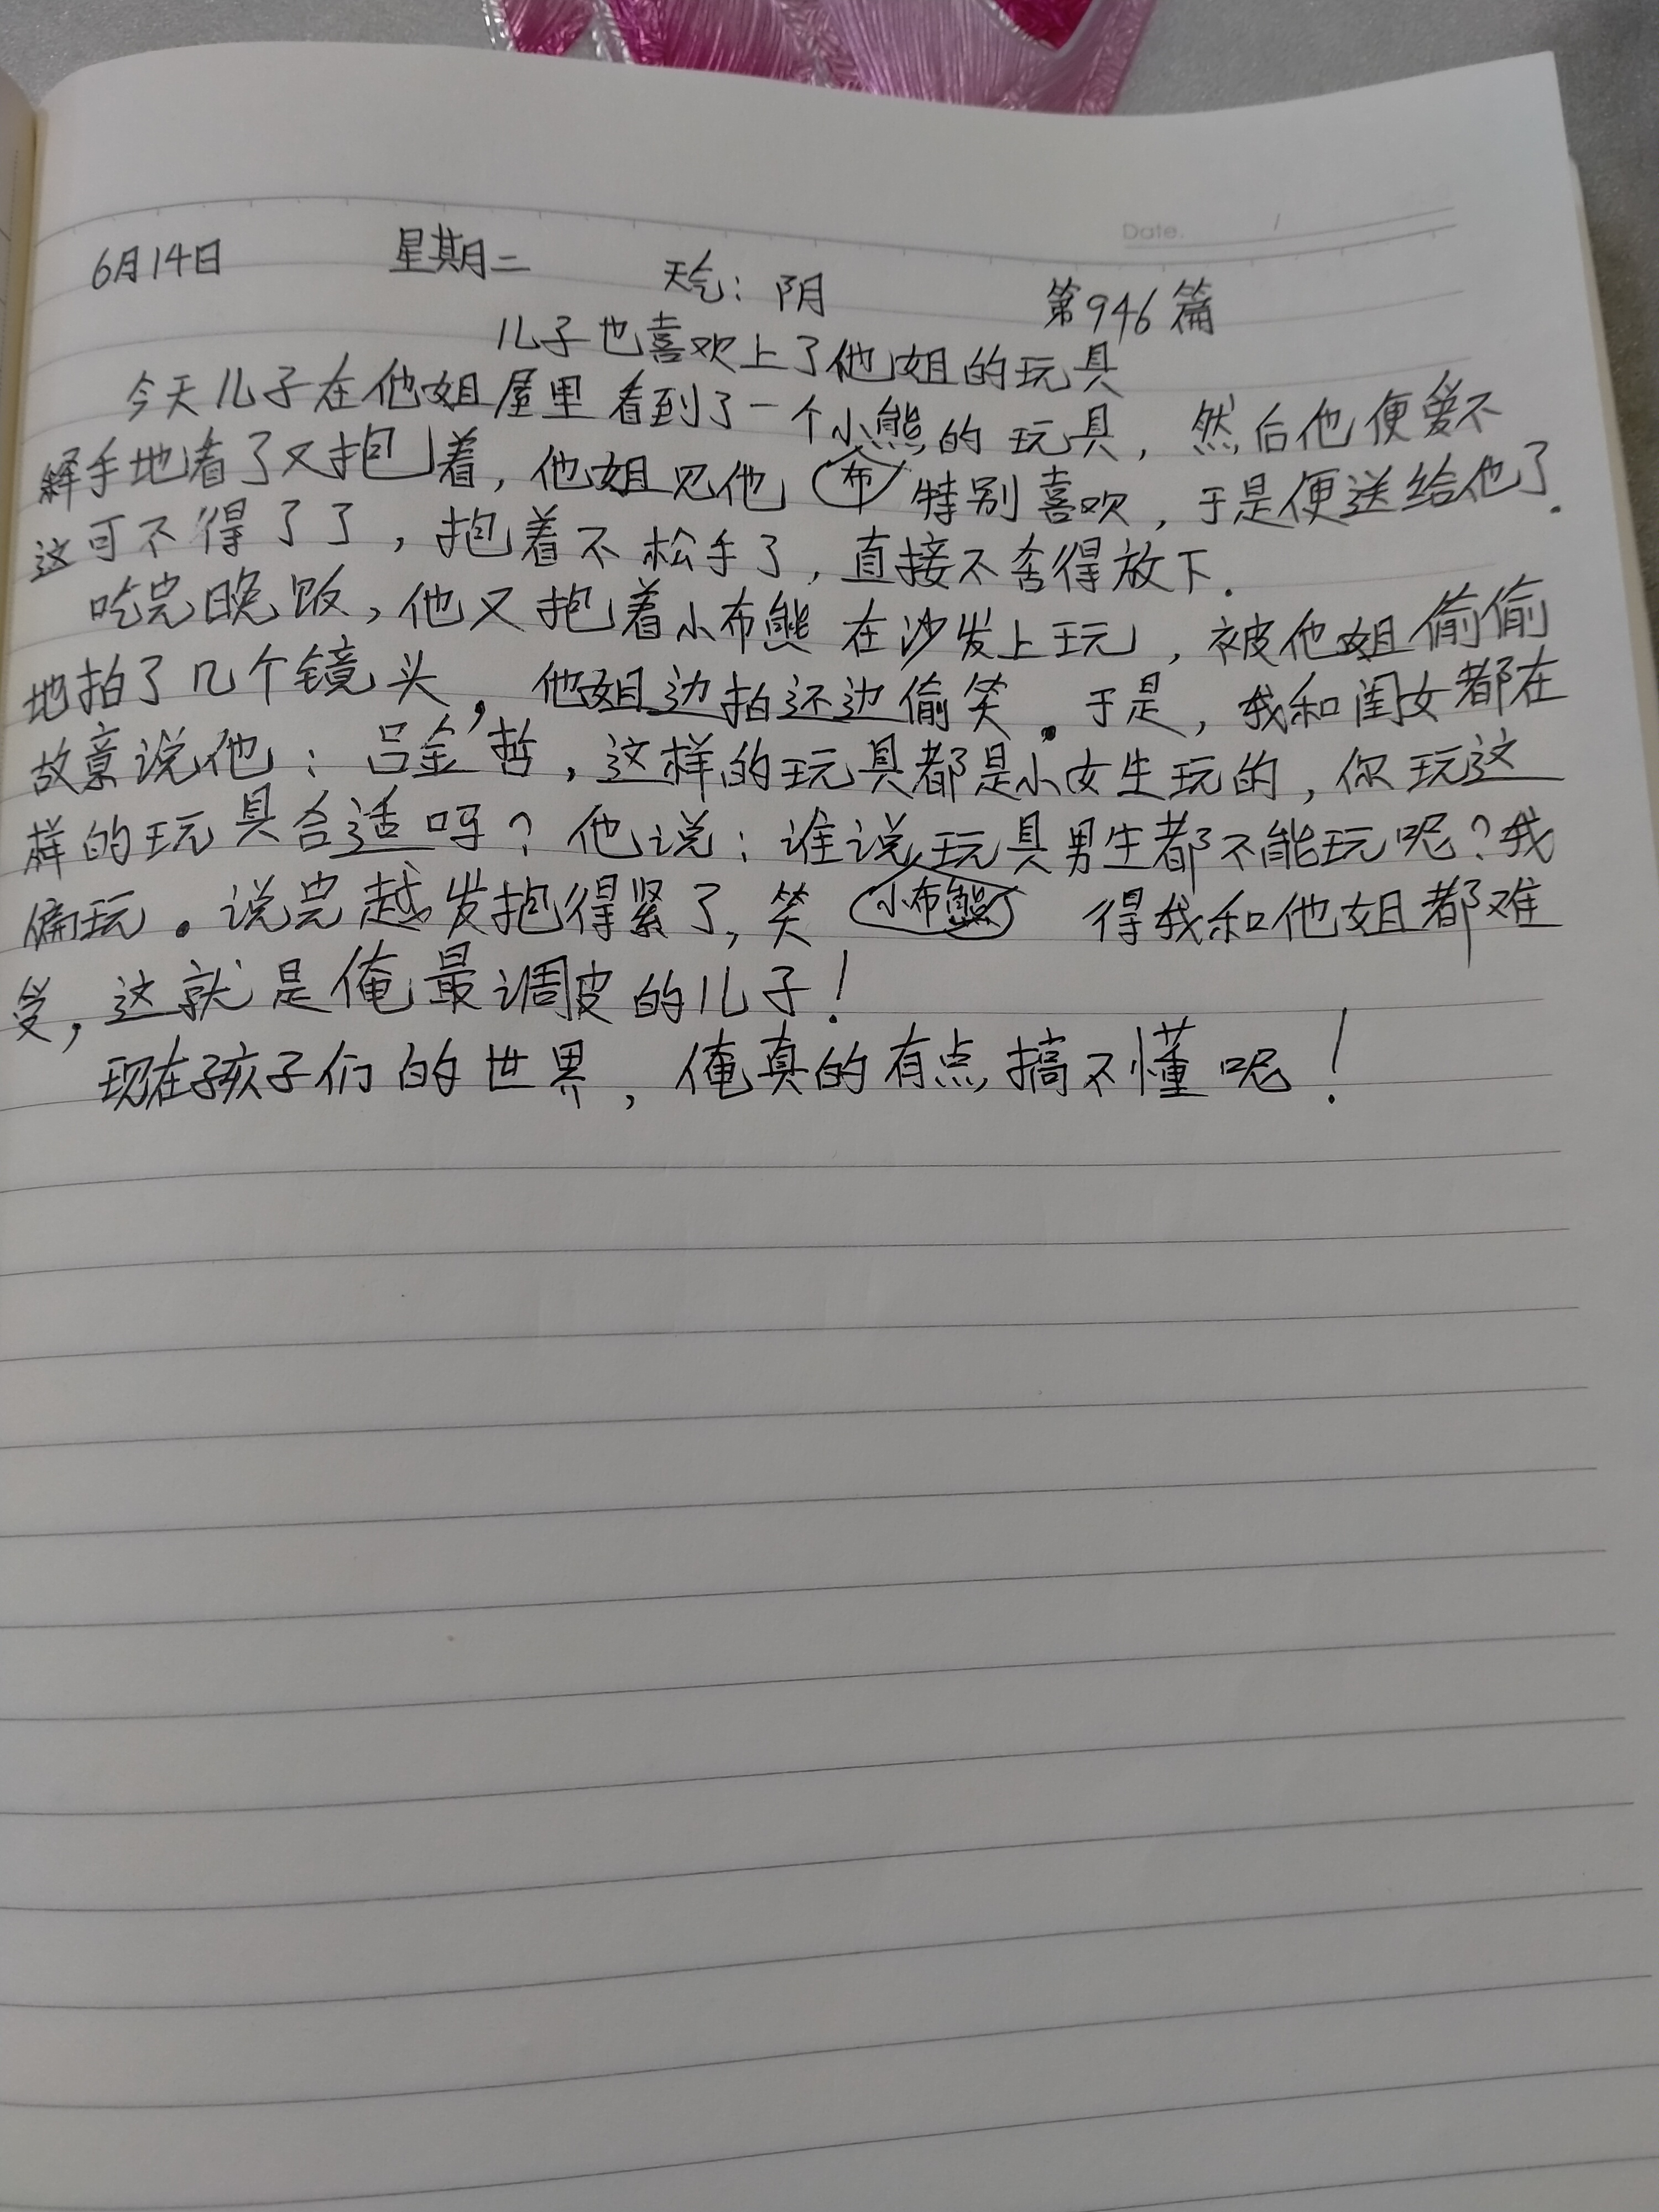 Date.
6月14日 星期二 天气：阴 第946篇
儿子也喜欢上了他姐的玩具
今天儿子在他姐屋里看到了一个小布熊的玩具，然后他便爱不
释手地看了又抱着，他姐见他特别喜欢，于是便送给他了.
这可不得了了，抱着不松手了，直接不舍得放下.
吃完晚饭，他又抱着小布熊在沙发上玩，被他姐偷偷
地拍了几个镜头，他姐边拍还边偷笑。于是，我和闺女都在
故意说他：吕金哲，这样的玩具都是小女生玩的，你玩这
样的玩具合适吗？他说：谁说小布熊玩具男生都不能玩呢？我
偏玩。说完越发抱得紧了，笑得我和他姐都难
受，这就是俺最调皮的儿子！
现在孩子们的世界，俺真的有点搞不懂呢！